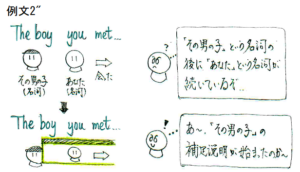 例文2"
The boy you met...
その男の子
(名詞)
あなた
(名詞)
会った
?
「その男の子」という名詞の
後に「あなた」という名詞が
続いているぞ...
The boy you met...
!
あ〜、「その男の子」の
補足説明が始まったのか〜